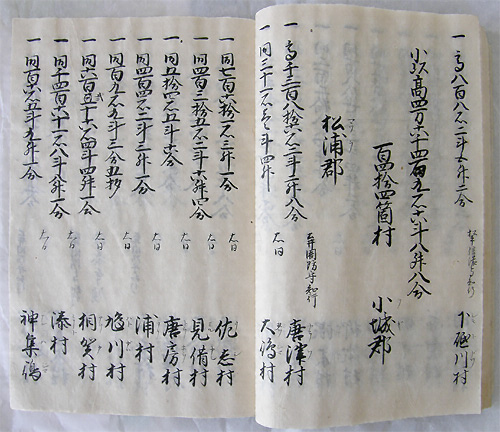 一 高八百八石二斗五升二合 下砥川村
小以高四万六千四百九石六斗八升八合
百四拾四箇村 小城郡
松浦郡
一 高千三百八拾六石二斗二升八合 土井周防守知行 唐津村
一 同三十一石七斗四升 右同 大嶋村
一 同七百六拾石三升一合 右同 佐志村
一 同四百三拾五石二斗六升四合 右同 見借村
一 同五拾四石五斗六合 右同 唐房村
一 同四百四石二斗三升一合 右同 浦村
一 同百九石五斗三合五勺 右同 鳩川村
一 同六百五十六石四斗四升一合 右同 相賀村
一 同千四百六十一石八斗八升一合 右同 湊村
一 同百六石五斗九升一合 右同 神集嶋